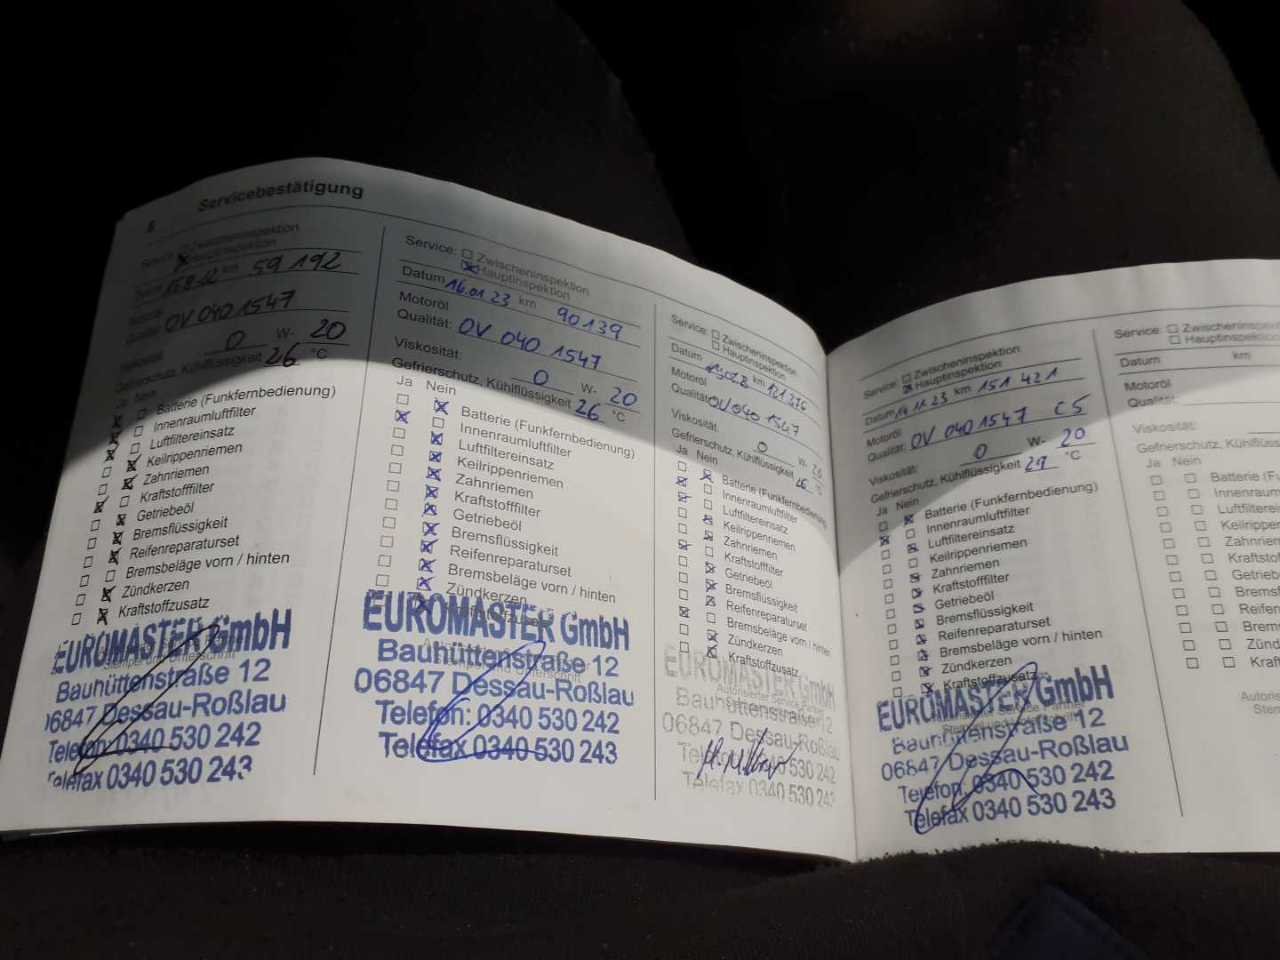 6 Servicebestätigung
Service: Zwischeninspektion
Hauptinspektion
km 59 192
Motoröl
Qualität: OV 040 1547
Viskosität: 0 W- 20
Gefrierschutz, Kühlflüssigkeit 26 °C
Ja Nein
Batterie (Funkfernbedienung)
Innenraumluftfilter
Luftfiltereinsatz
Keilrippenriemen
Zahnriemen
Kraftstofffilter
Getriebeöl
Bremsflüssigkeit
Reifenreparaturset
Bremsbeläge vorn / hinten
Zündkerzen
Kraftstoffzusatz
EUROMASTER GmbH
Stempel und Unterschrift
Bauhüttenstraße 12
06847 Dessau-Roßlau
Telefon: 0340 530 242
Telefax 0340 530 243
Service: Zwischeninspektion
Hauptinspektion
Datum 16.01.23 km 90139
Motoröl
Qualität: OV 040 1547
Viskosität: 0 W- 20
Gefrierschutz, Kühlflüssigkeit 26 °C
Ja Nein
Batterie (Funkfernbedienung)
Innenraumluftfilter
Luftfiltereinsatz
Keilrippenriemen
Zahnriemen
Kraftstofffilter
Getriebeöl
Bremsflüssigkeit
Reifenreparaturset
Bremsbeläge vorn / hinten
Zündkerzen
Kraftstoffzusatz
EUROMASTER GmbH
Bauhüttenstraße 12
06847 Dessau-Roßlau
Telefon: 0340 530 242
Telefax 0340 530 243
Service: Zwischeninspektion
Hauptinspektion
Datum km 121376
Motoröl
Qualität: OV 040 1547
Viskosität: 0 W- 20
Gefrierschutz, Kühlflüssigkeit 26 °C
Ja Nein
Batterie (Funkfernbedienung)
Innenraumluftfilter
Luftfiltereinsatz
Keilrippenriemen
Zahnriemen
Kraftstofffilter
Getriebeöl
Bremsflüssigkeit
Reifenreparaturset
Bremsbeläge vorn / hinten
Zündkerzen
Kraftstoffzusatz
EUROMASTER GmbH
Autorisierter Service Partner
Bauhüttenstraße 12
06847 Dessau-Roßlau
Telefon: 0340 530 242
Telefax 0340 530 243
Service: Zwischeninspektion
Hauptinspektion
Datum 14.11.23 km 151 421
Motoröl
Qualität: OV 040 1547 C5
Viskosität: 0 W- 20
Gefrierschutz, Kühlflüssigkeit 29 °C
Ja Nein
Batterie (Funkfernbedienung)
Innenraumluftfilter
Luftfiltereinsatz
Keilrippenriemen
Zahnriemen
Kraftstofffilter
Getriebeöl
Bremsflüssigkeit
Reifenreparaturset
Bremsbeläge vorn / hinten
Zündkerzen
Kraftstoffzusatz
EUROMASTER GmbH
Bauhüttenstraße 12
06847 Dessau-Roßlau
Telefon: 0340 530 242
Telefax 0340 530 243
Service: Zwischeninspe
Hauptinspektion
Datum km
Motoröl
Qualität:
Viskosität:
Gefrierschutz, Kühlflüss
Ja Nein
Batterie (Fu
Innenraum
Luftfilterein
Keilrippen
Zahnriem
Kraftsto
Getriebe
Brems
Reifen
Brem
Zünd
Kraf
Autori
Sten